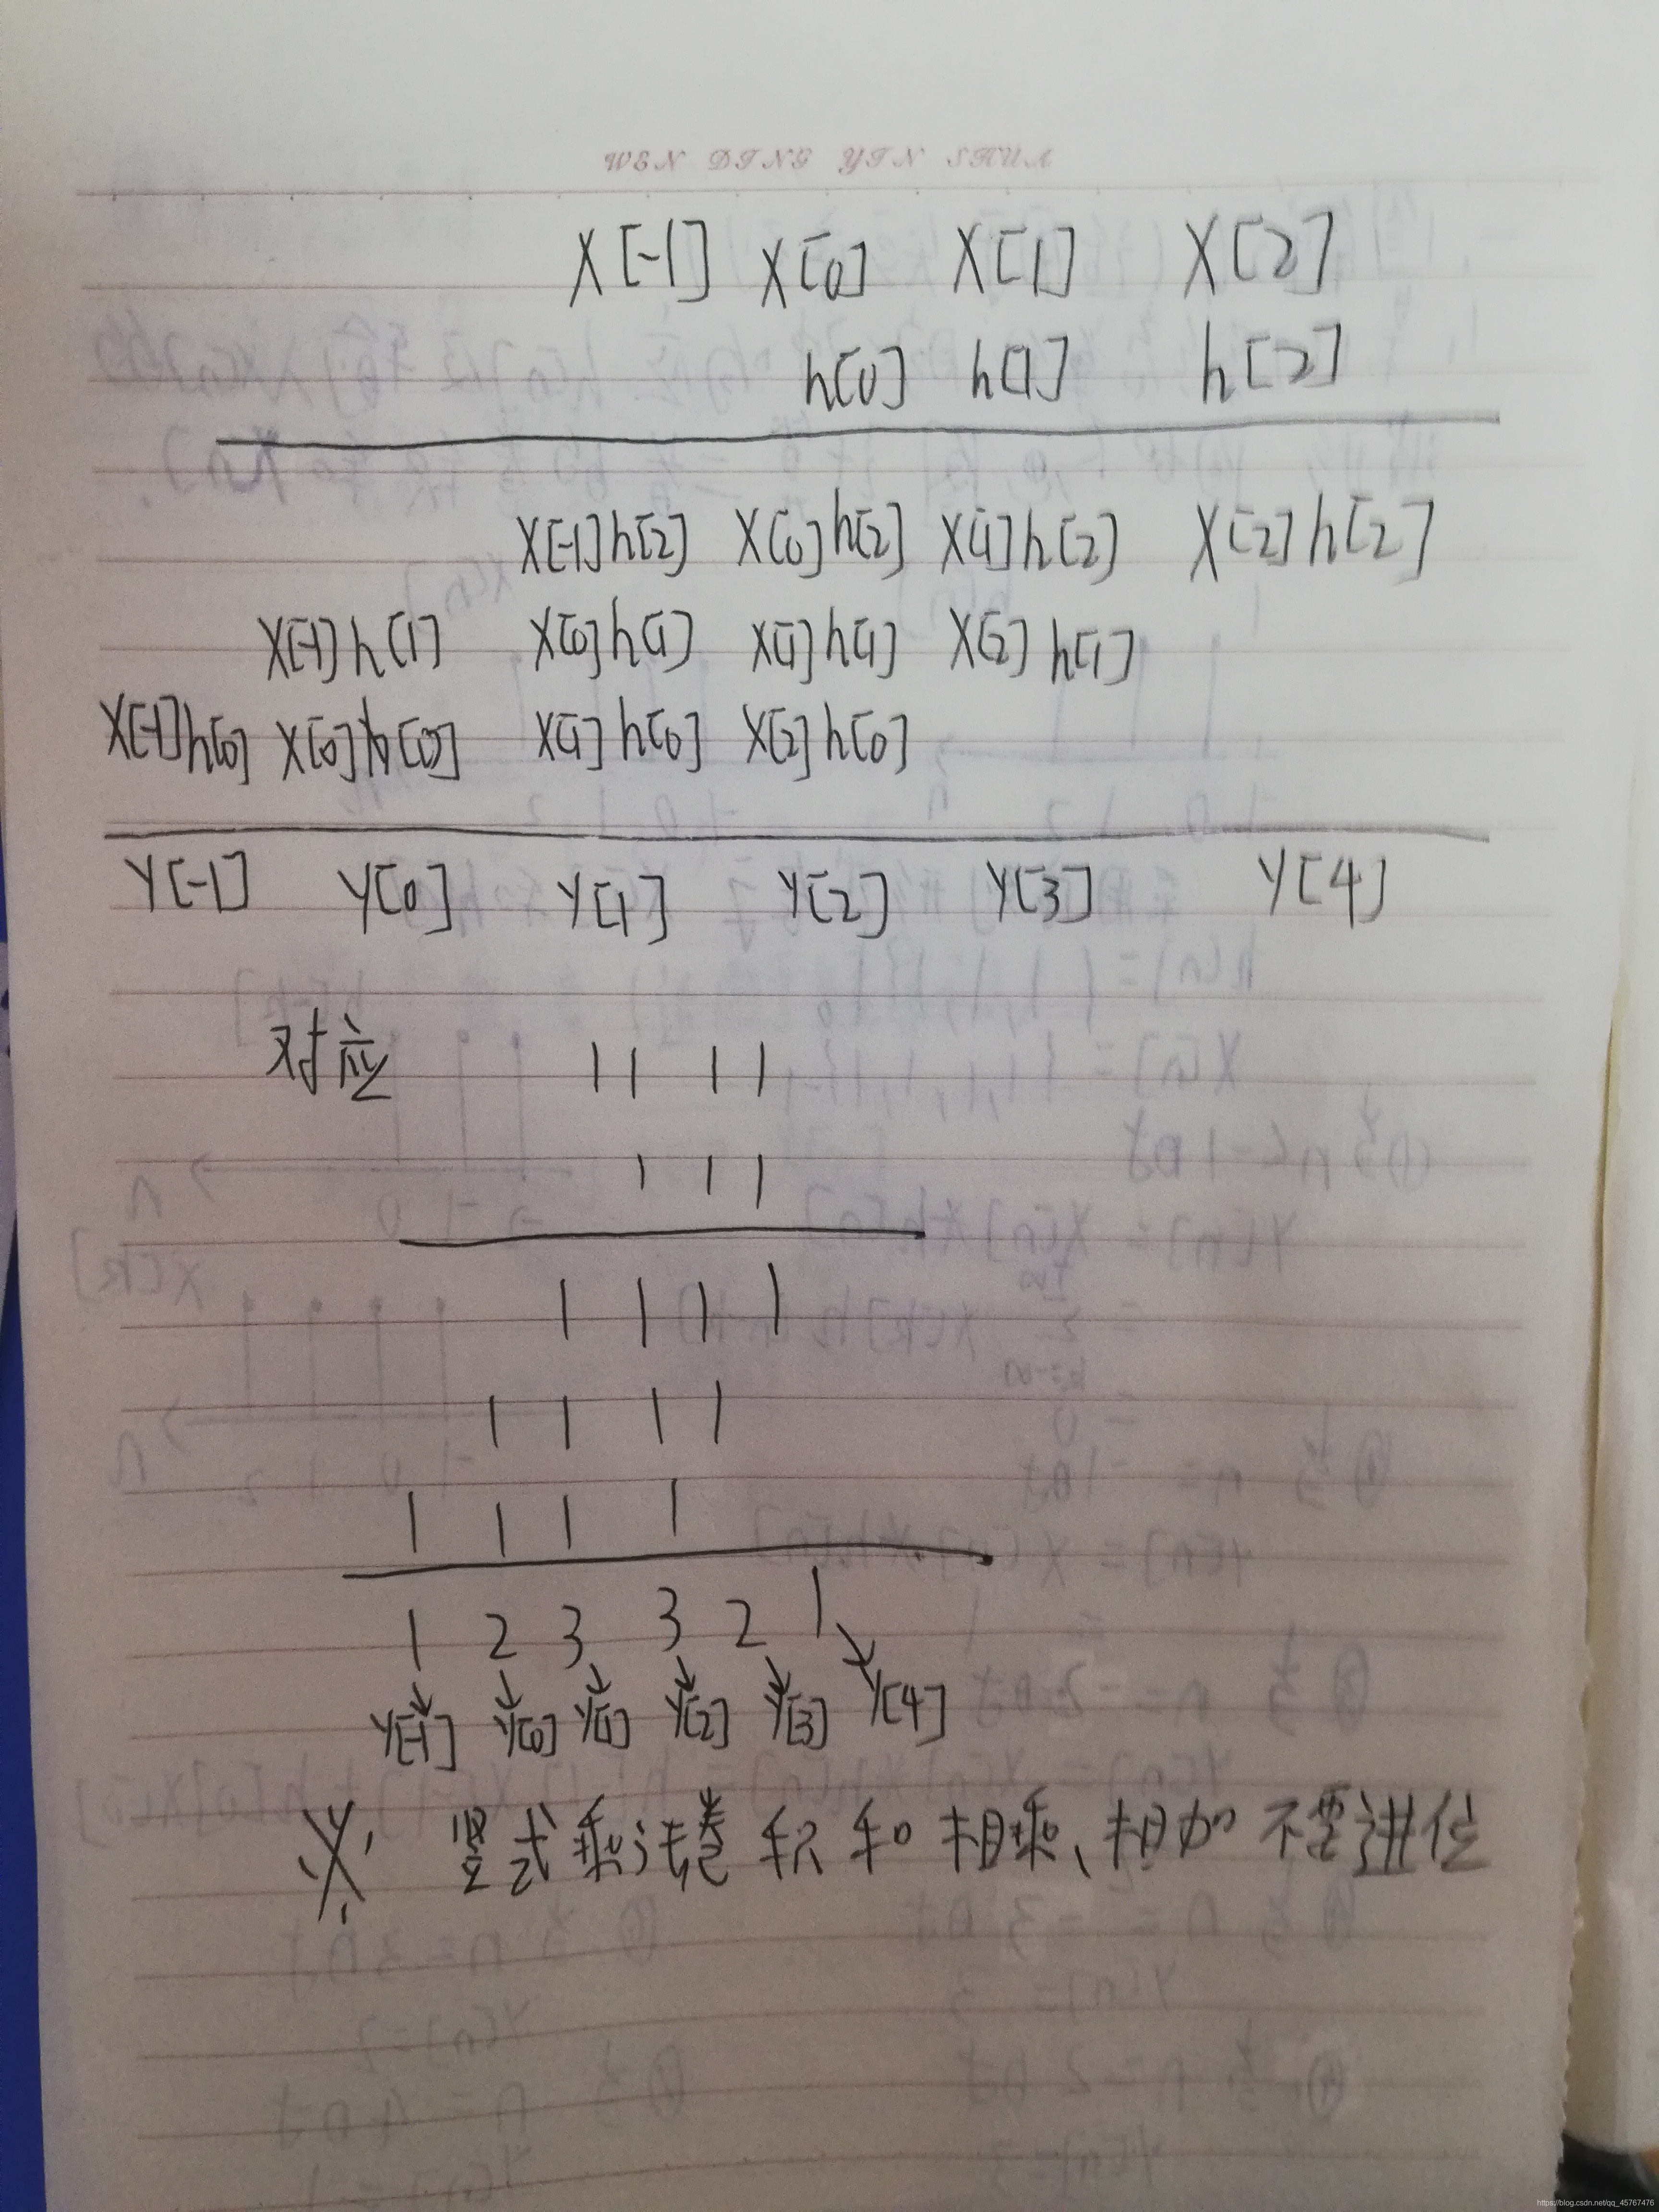 WEN DING YIN SHUA
X[-1] X[0] X[1] X[2]
h[0] h[1] h[2]
X[-1]h[2] X[0]h[2] X[1]h[2] X[2]h[2]
X[-1]h[1] X[0]h[1] X[1]h[1] X[2]h[1]
X[-1]h[0] X[0]h[0] X[1]h[0] X[2]h[0]
Y[-1] Y[0] Y[1] Y[2] Y[3] Y[4]
对应 1 1 1 1
1 1 1
1 1 1 1
1 1 1 1
1 1 1 1
1 2 3 3 2 1
Y[-1] Y[0] Y[1] Y[2] Y[3] Y[4]
※ 竖式乘法卷积和相乘、相加不要进位
https://blog.csdn.net/qq_45767476